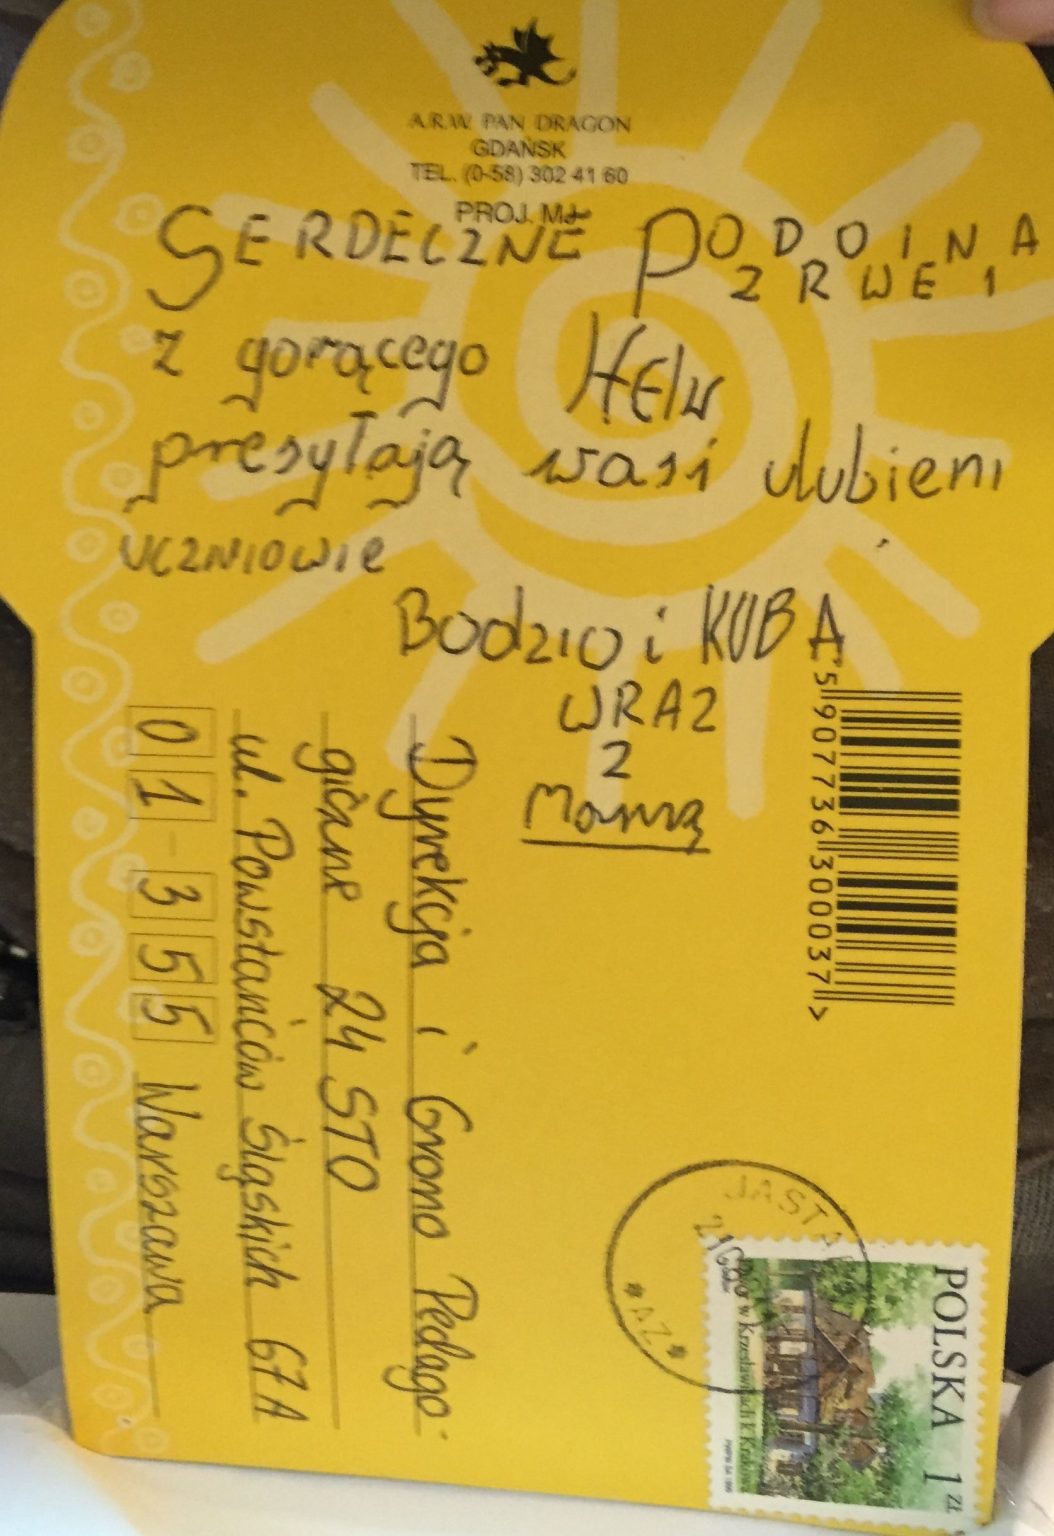 A.R.W. PAN DRAGON
GDAŃSK
TEL. (0-58) 302 41 60
PROJ.
SERDECZNE POZDROWIENIA
z gorącego HELU
presyłają wasi ulubieni
UCZNIOWIE
Bodzio i KUBA
WRAZ
Z
Mamą
5 907736 300037 >
Dyrekcja i Grono Pedago-
giczne 24 STO
ul. Powstańców Śląskich 67A
01-355 Warszawa
JASTA
*AZ*
POLSKA 1 zł
Dwór w Krzesławicach k. Krakowa